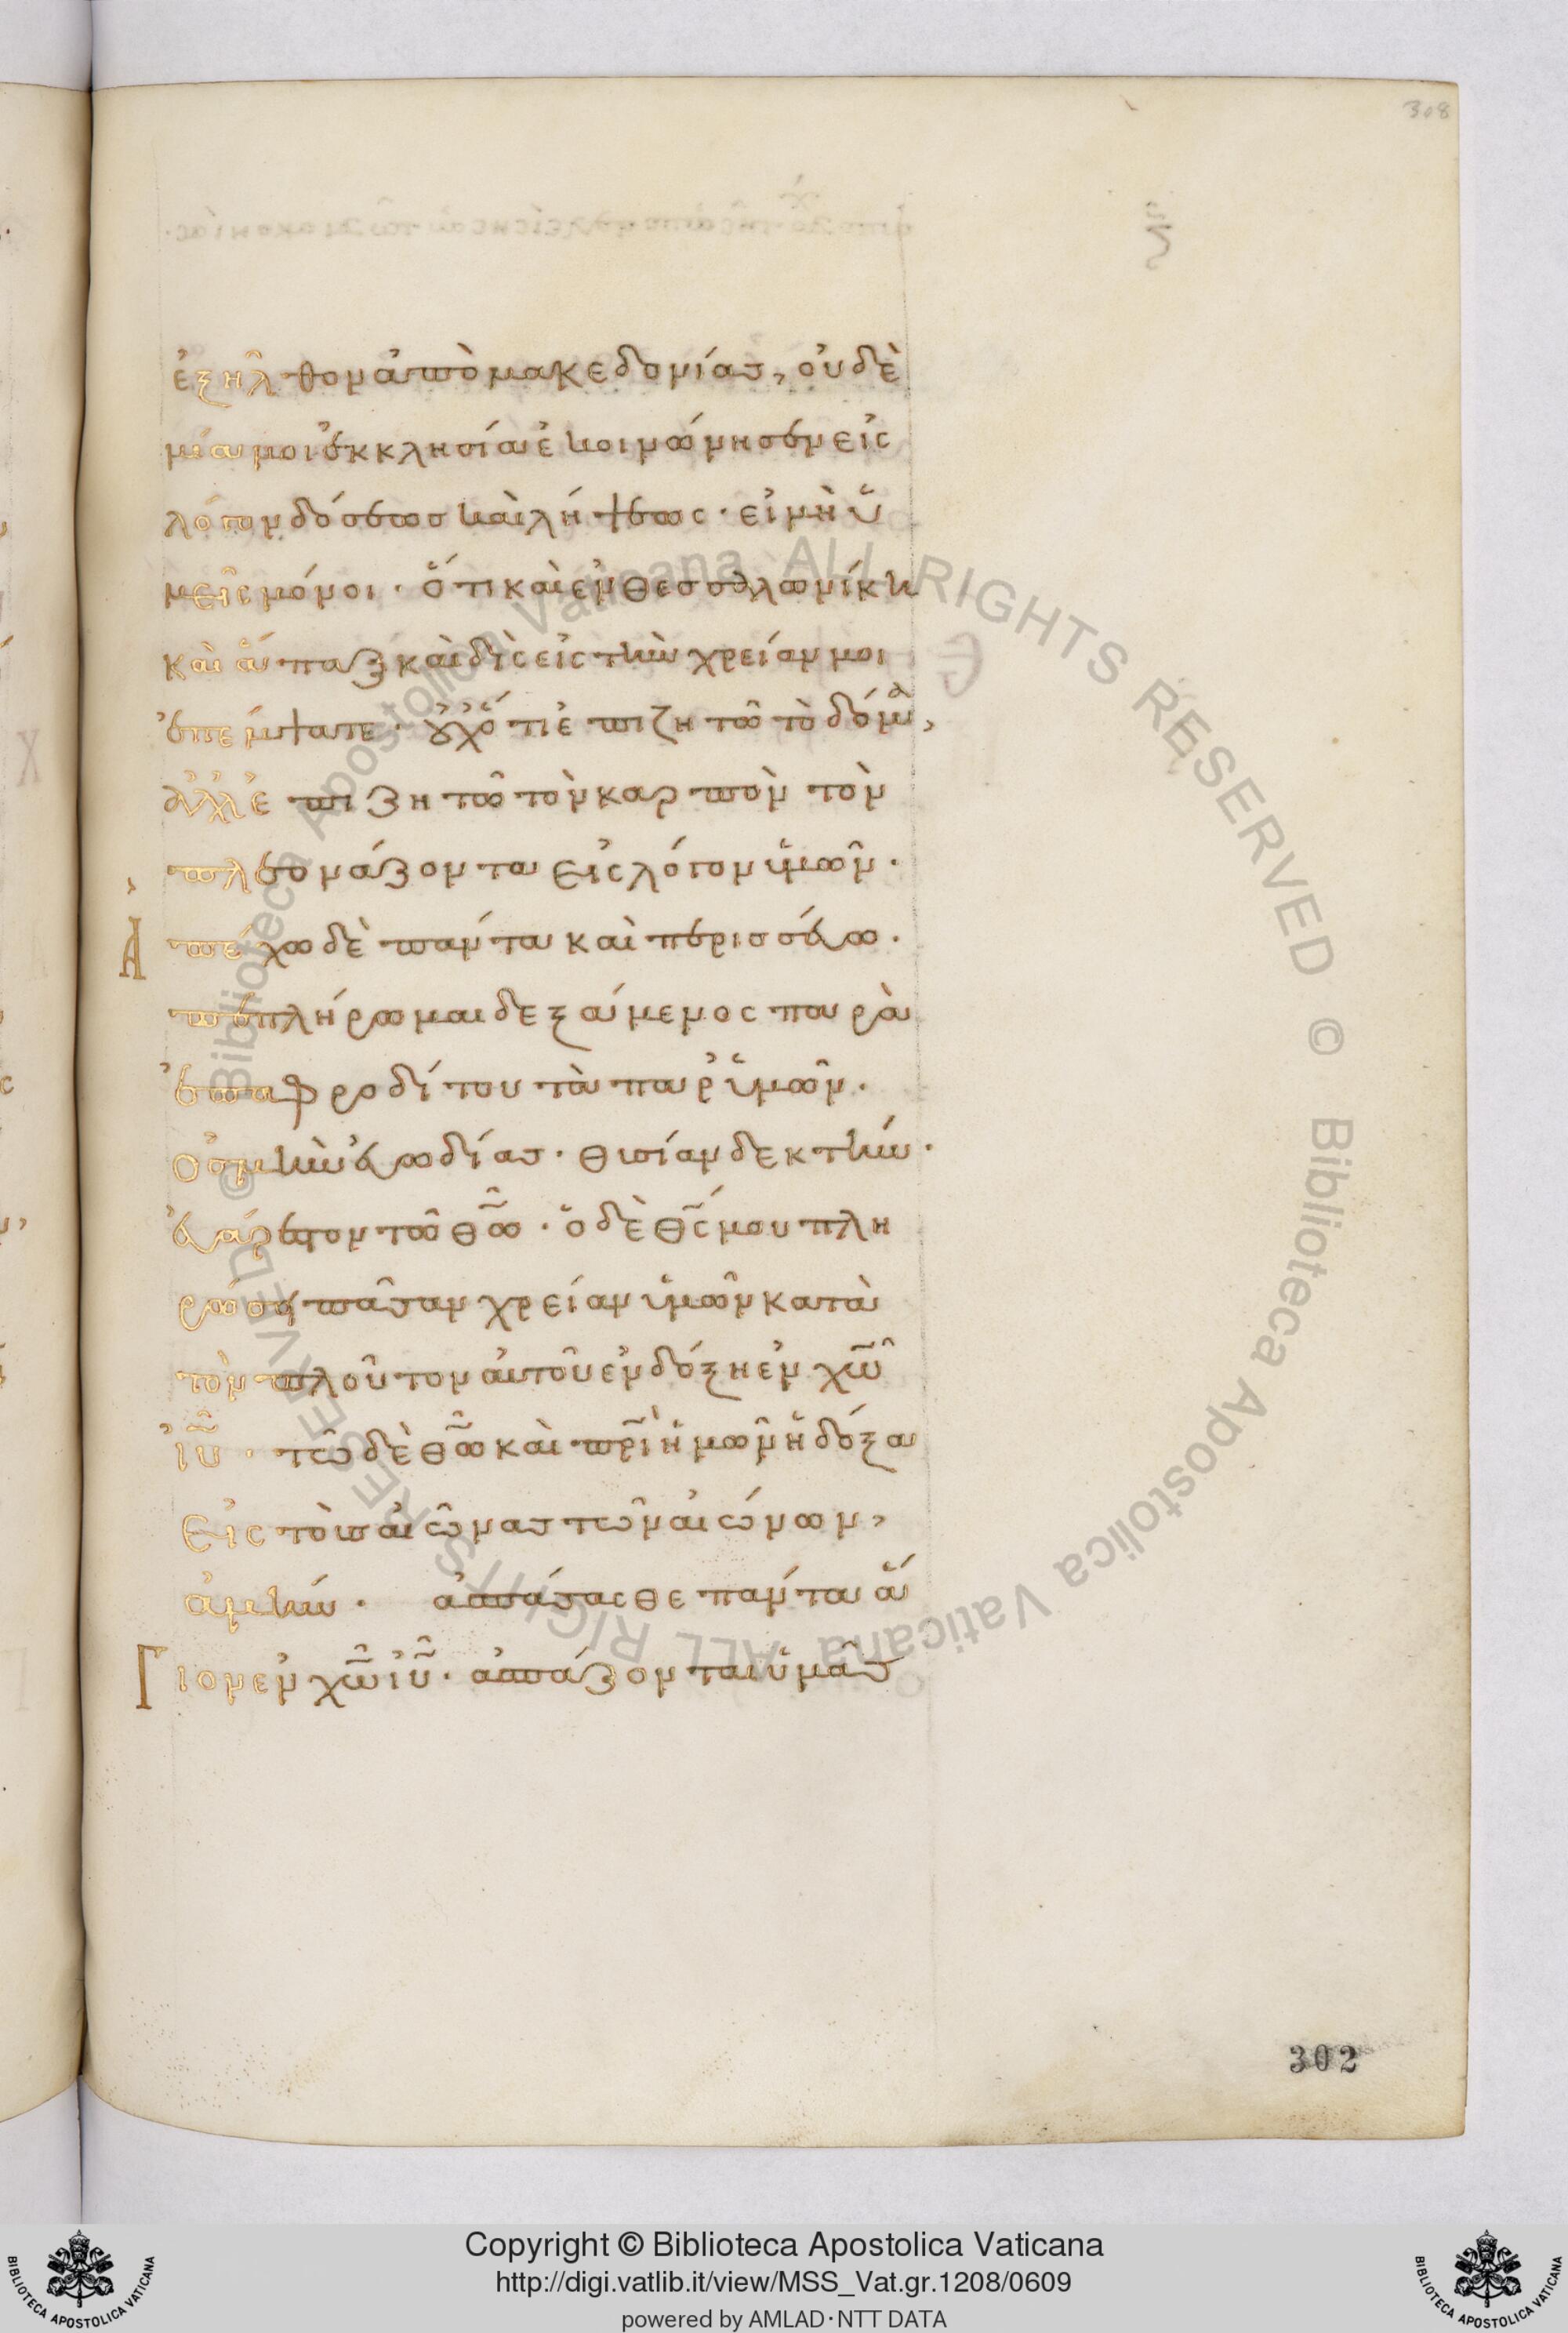 308
ἐξῆλθον ἀπὸ μακεδονίας, οὐδε
μία μοι ἐκκλησία ἐκοινώνησεν εἰς
λόγον δόσεως καὶ λήψεως · εἰ μὴ ὑ
μεῖς μόνοι · ὅτι καὶ ἐν θεσσαλωνίκη
καὶ ἅπαξ καὶ δὶς εἰς τὴν χρείαν μοι
ἐπέμψατε · οὐχ ὅτι ἐπιζητῶ τὸ δόμα,
ἀλλ' ἐπιζητῶ τὸν καρπὸν τὸν
πλεονάζοντα εἰς λόγον ὑμῶν ·
Ἀπέχω δὲ πάντα καὶ περισσεύω ·
πεπλήρωμαι δεξάμενος παρὰ
ἐπαφροδίτου τὰ παρ' ὑμῶν ·
ὀσμὴν εὐωδίας · θυσίαν δεκτήν ·
εὐάρεστον τῶ θ̅ω̅ · ὁ δὲ θ̅ς̅ μου πλη
ρώσει πᾶσαν χρείαν ὑμῶν κατὰ
τὸν πλοῦτον αὐτοῦ ἐν δόξη ἐν χ̅ω̅
ἰ̅υ̅ · τῶ δὲ θ̅ω̅ καὶ π̅ρ̅ι̅ ἡμῶν ἡ δόξα
εἰς τοὺς αἰῶνας τῶν αἰώνων,
ἀμήν · ἀσπάσασθε πάντα ἅ
Γιον ἐν χ̅ω̅ ἰ̅υ̅ · ἀσπάζονται ὑμᾶς
302
© Biblioteca Apostolica Vaticana ALL RIGHTS RESERVED © Biblioteca Apostolica Vaticana ALL RIGHTS RESERVED
BIBLIOTECA APOSTOLICA VATICANA
Copyright © Biblioteca Apostolica Vaticana
http://digi.vatlib.it/view/MSS_Vat.gr.1208/0609
powered by AMLAD·NTT DATA
BIBLIOTECA APOSTOLICA VATICANA